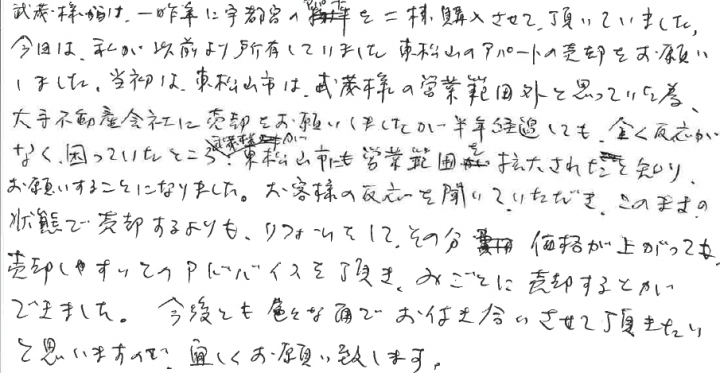 武蔵様からは、一昨年に宇都宮の を二棟購入させて頂いていました。
今回は、私が以前より所有していました東松山のアパートの売却をお願い
しました。当初は、東松山市は、武蔵様の営業範囲外と思っていた為、
大手不動産会社に売却をお願いしましたが半年経過しても、全く反応が
なく、困っていたところ、武蔵様が東松山市にも営業範囲を拡大されたと知り、
お願いすることになりました。お客様の反応を聞いていただき、このままの
状態で売却するよりも、リフォームをして、その分価格が上がっても、
売却しやすいとのアドバイスを頂き、みごとに売却することが
できました。 今後とも色々な面でお付き合いさせて頂きたい
と思いますので、宜しくお願い致します。